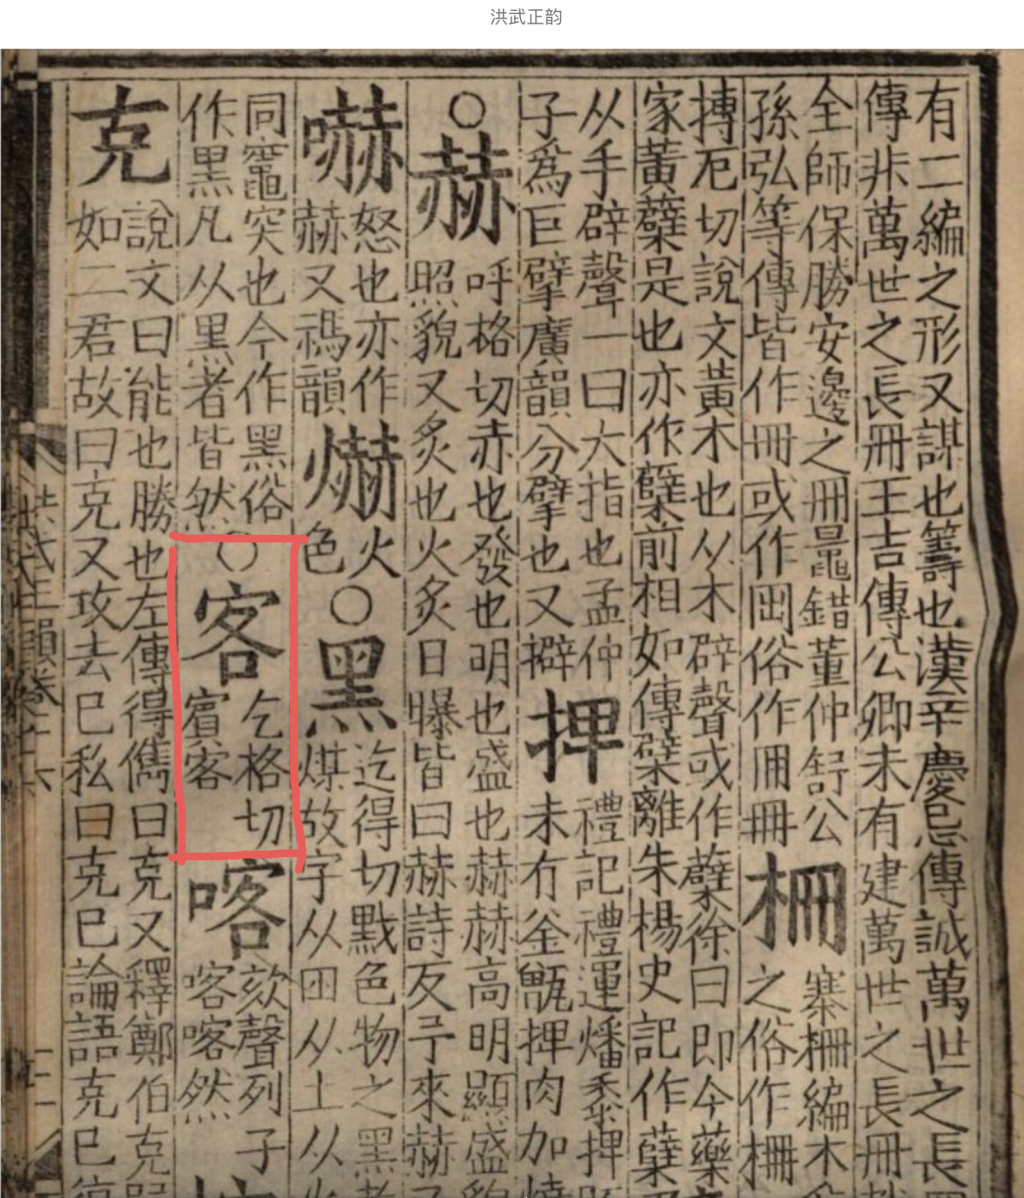 洪武正韵
有二編之形又謀也籌也漢辛慶忌傳誠萬世之長
傳非萬世之長冊王吉傳公卿未有建萬世之長冊
全師保勝安邊之冊鼂錯董仲舒公
孫弘等傳皆作冊或作𠕋俗作𠕁冊
柵
寨柵編木
之俗作柵
摶厄切說文黃木也从木辟聲或作蘗徐曰即今藥
家黃蘗是也亦作蘗前相如傳蘗離朱楊史記作蘗
从手辟聲一曰大指也孟仲
子為巨擘廣韻分擘也又擗
捭
禮記禮運燔黍捭
未有釜甑捭肉加燒
○赫
呼格切赤也發也明也盛也赫赫高明顯盛
照貌又炙也火炙日曝皆曰赫詩反予來赫
嚇
怒也亦作
赫又禡韻
爀
火
色
○黑
迄得切黓色物之黑
煤故字从囪从土从
同竈突也今作黑俗
作黑凡从黑者皆然
○客
乞格切
賓客
喀
欬聲列子
喀喀然
克
說文曰能也勝也左傳得儁曰克又釋鄭伯克
如二君故曰克又攻去己私曰克己論語克己復
洪武正韻卷十六